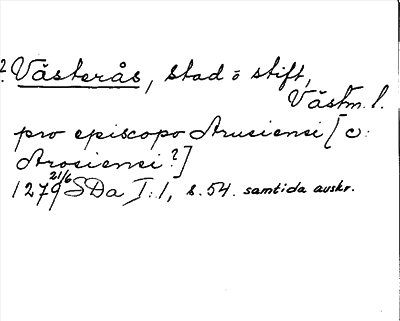 ? Västerås, stad o stift,
Västm. l.
pro episcopo Arusiensi [ɔ:
Arosiensi?]
1279 21/6 SDa I:1, s. 54. samtida avskr.